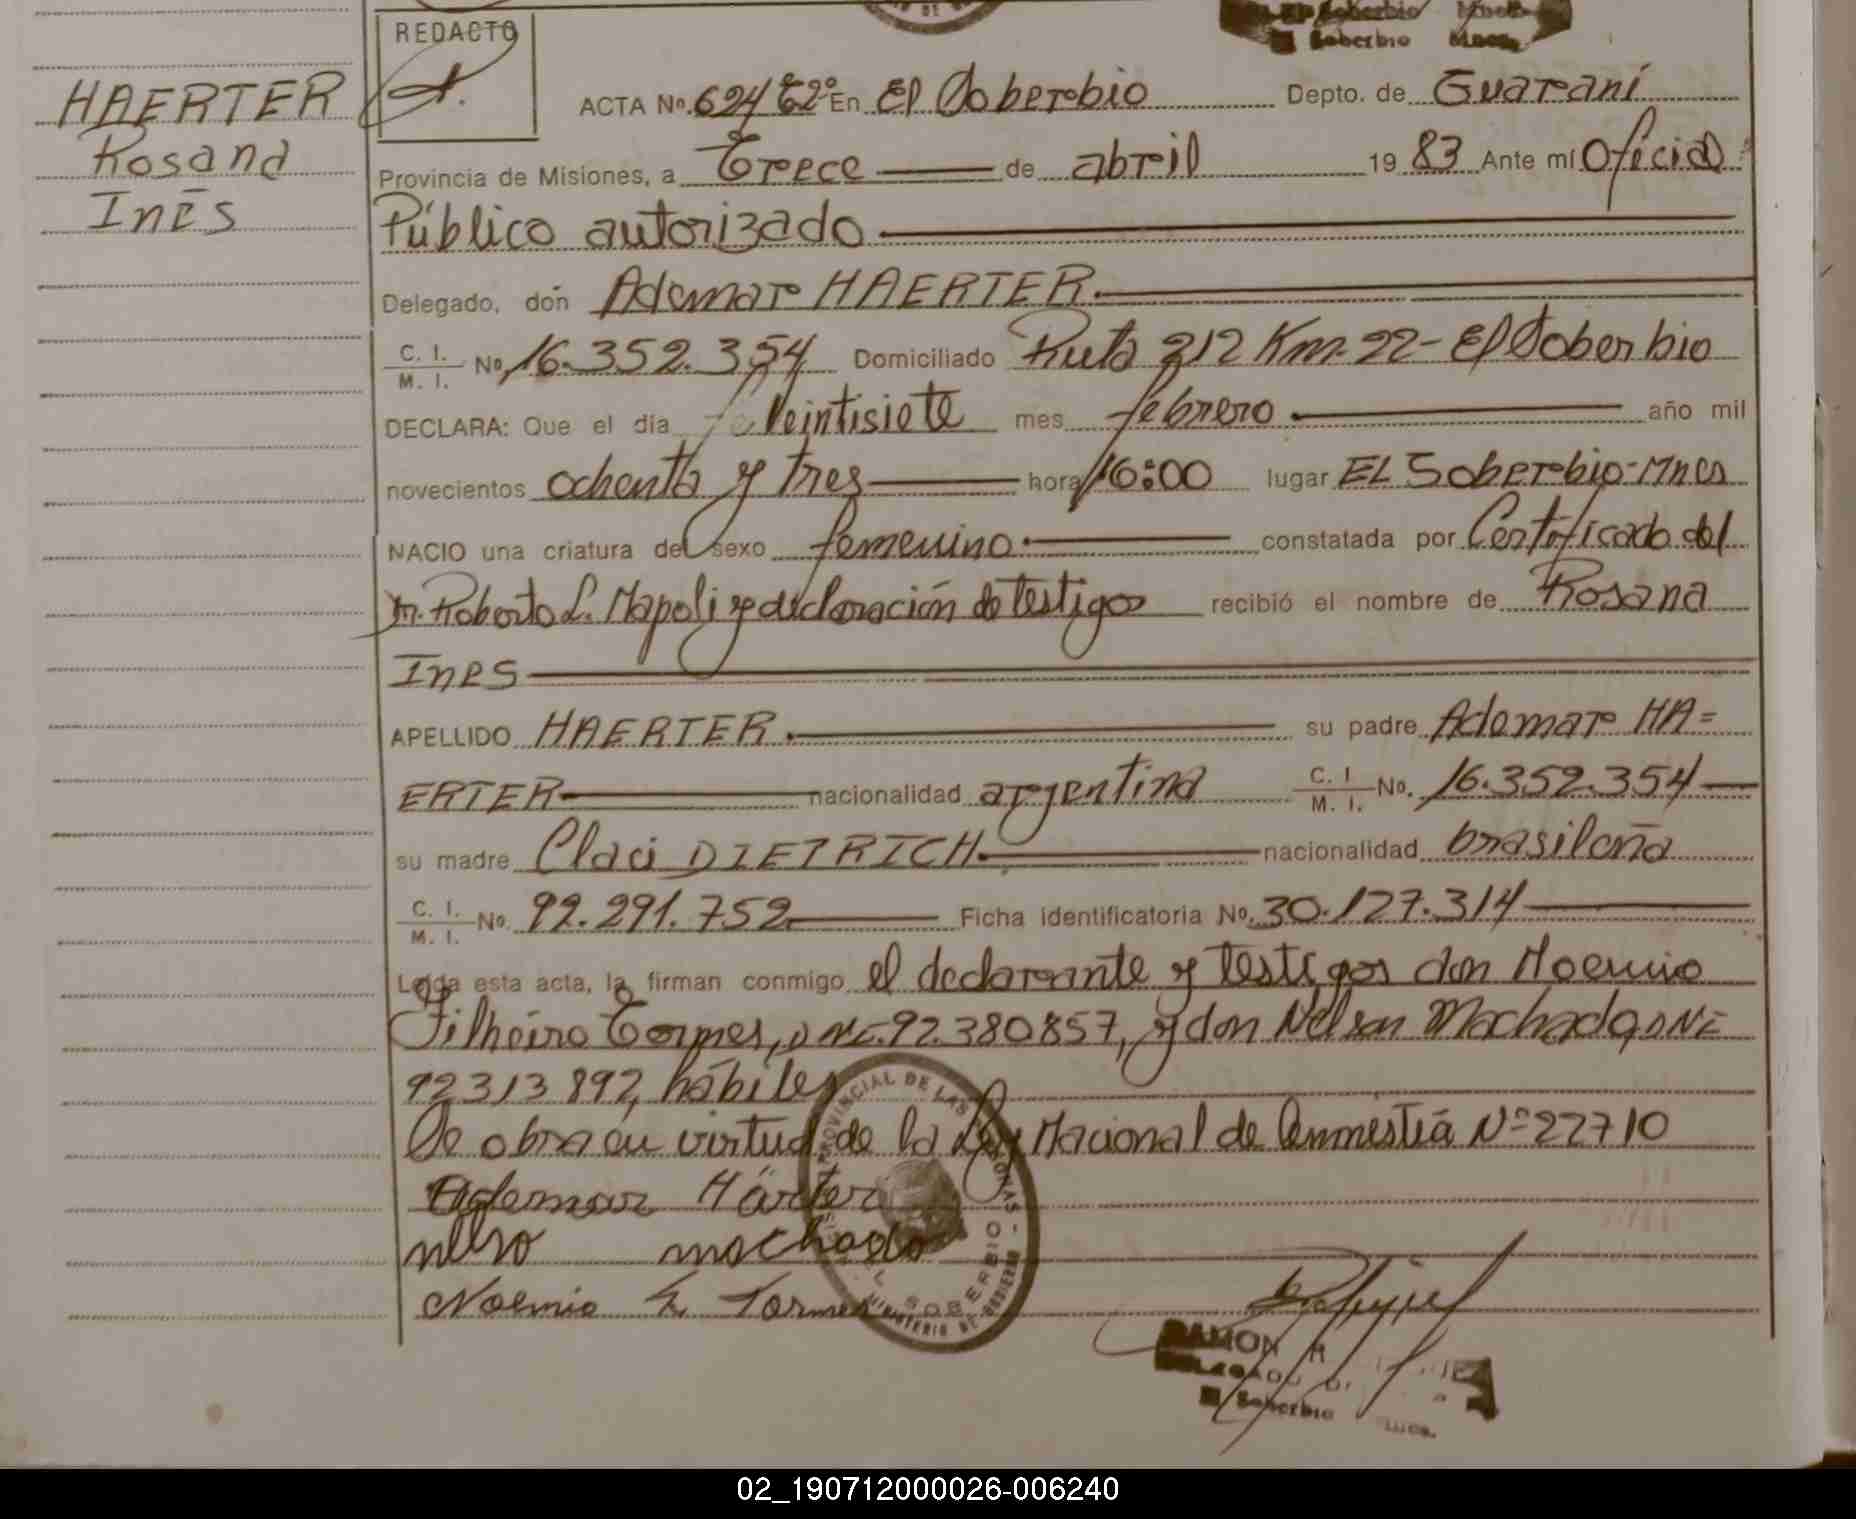 El Soberbio Mnes.
Soberbio Mnes.
REDACTO
HAERTER
Rosana
Inés
ACTA No. 624 Tº 2º En El Soberbio Depto. de Guaraní
Provincia de Misiones, a Trece de abril 19 83 Ante mí Oficial
Público autorizado
Delegado, don Ademar HAERTER.
C. I. M. I. No. 16.352.354 Domiciliado Ruta 212 Km. 22- El Soberbio
DECLARA: Que el día Veintisiete mes febrero año mil
novecientos ochenta y tres hora 16:00 lugar EL Soberbio-Mnes
NACIO una criatura del sexo femenino constatada por Certificado del
Dr. Roberto L. Napoli y declaración de testigos recibió el nombre de Rosana
Ines
APELLIDO HAERTER. su padre Ademar HA=
ERTER nacionalidad argentina C. I. M. I. No. 16.352.354
su madre Claci DIETRICH. nacionalidad brasileña
C. I. M. I. No. 92.291.752 Ficha identificatoria No. 30.127.314
Leída esta acta, la firman conmigo el declarante y testigos don Noemio
Filheiro Tormes, DNI. 92.380857, y don Nelson Machado, DNI
92313892, hábiles
Se obra en virtud de la Ley Nacional de Ammestia Nº 22710
Ademar Härter
nelso machado
Noemio F. Tormes
PROVINCIAL DE LAS PERSONAS - MINISTERIO DE GOBIERNO
EL SOBERBIO
RAMON R
DELEGADO
El Soberbio Mnes.
02_190712000026-006240